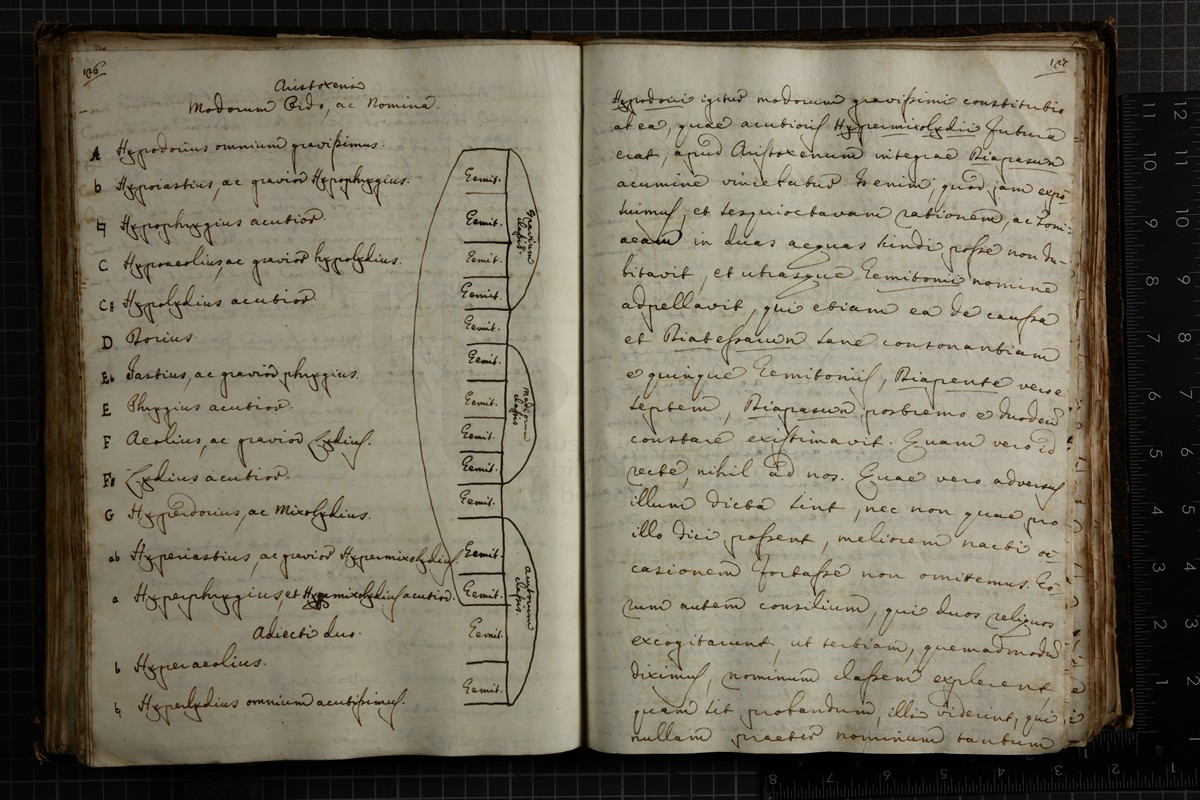 126
Aristoxeni
Modorum Ordo, ac Nomina.
A Hypodorius omnium gravißimus.
b Hypoiastius, ac gravior Hypophrygius.
♮ Hypophrygius acutior.
C Hypoaeolius, ac gravior hypolydius.
C♯ Hypolydius acutior
D Dorius.
Eb Iastius, ac gravior phrygius.
E Phrygius acutior.
F Aeolius, ac gravior Lydius.
F♯ Lydius acutior.
G Hyperdorius, ac Mixolydius.
ab Hyperiastius, ac gravior Hypermixolydius
a Hyperphrygius, et Hypermixolydius acutior.
Adiecti duo.
b Hyperaeolius.
♮ Hyperlydius omnium acutißimus.
Semit.
Semit.
Semit.
Semit.
Semit.
Semit.
Semit.
Semit.
Semit.
Semit.
Semit.
Semit.
Semit.
Semit.
Gravium
claßis.
mediorum
claßis
acutorum
claßis
127
Hypodorii igitur modorum gravißimi constitutio
at ea, quae acutioris Hypermixolydii futura
erat, apud Aristoxenum integrae Diapason
acumine vincebatur. Is enim, quod jam expo-
suimus, et sesquioctavam rationem, ac Toni-
aeam in duas aequas scindi posse non du-
bitavit, et utrasque Semitonii nomine
adpellavit, qui etiam ea de caussa
et Diatessaron sane consonantiam
e quinque Semitoniis, Diapente vero e
septem, Diapason postremo e duodecim
constare existimavit. Quam vero id
recte, nihil ad nos. Quae vero adversus
illum dicta sint, nec non quae pro
illo dici possent, meliorem nacti oc-
casionem fortasse non omittemus. Eo-
rum autem consilium, qui duos reliquos
excogitarunt, ut tertiam, quemadmodum
diximus, nominum classem explerent
quam sit probandum, illi viderint, qui
nullam praeter nominum tantum